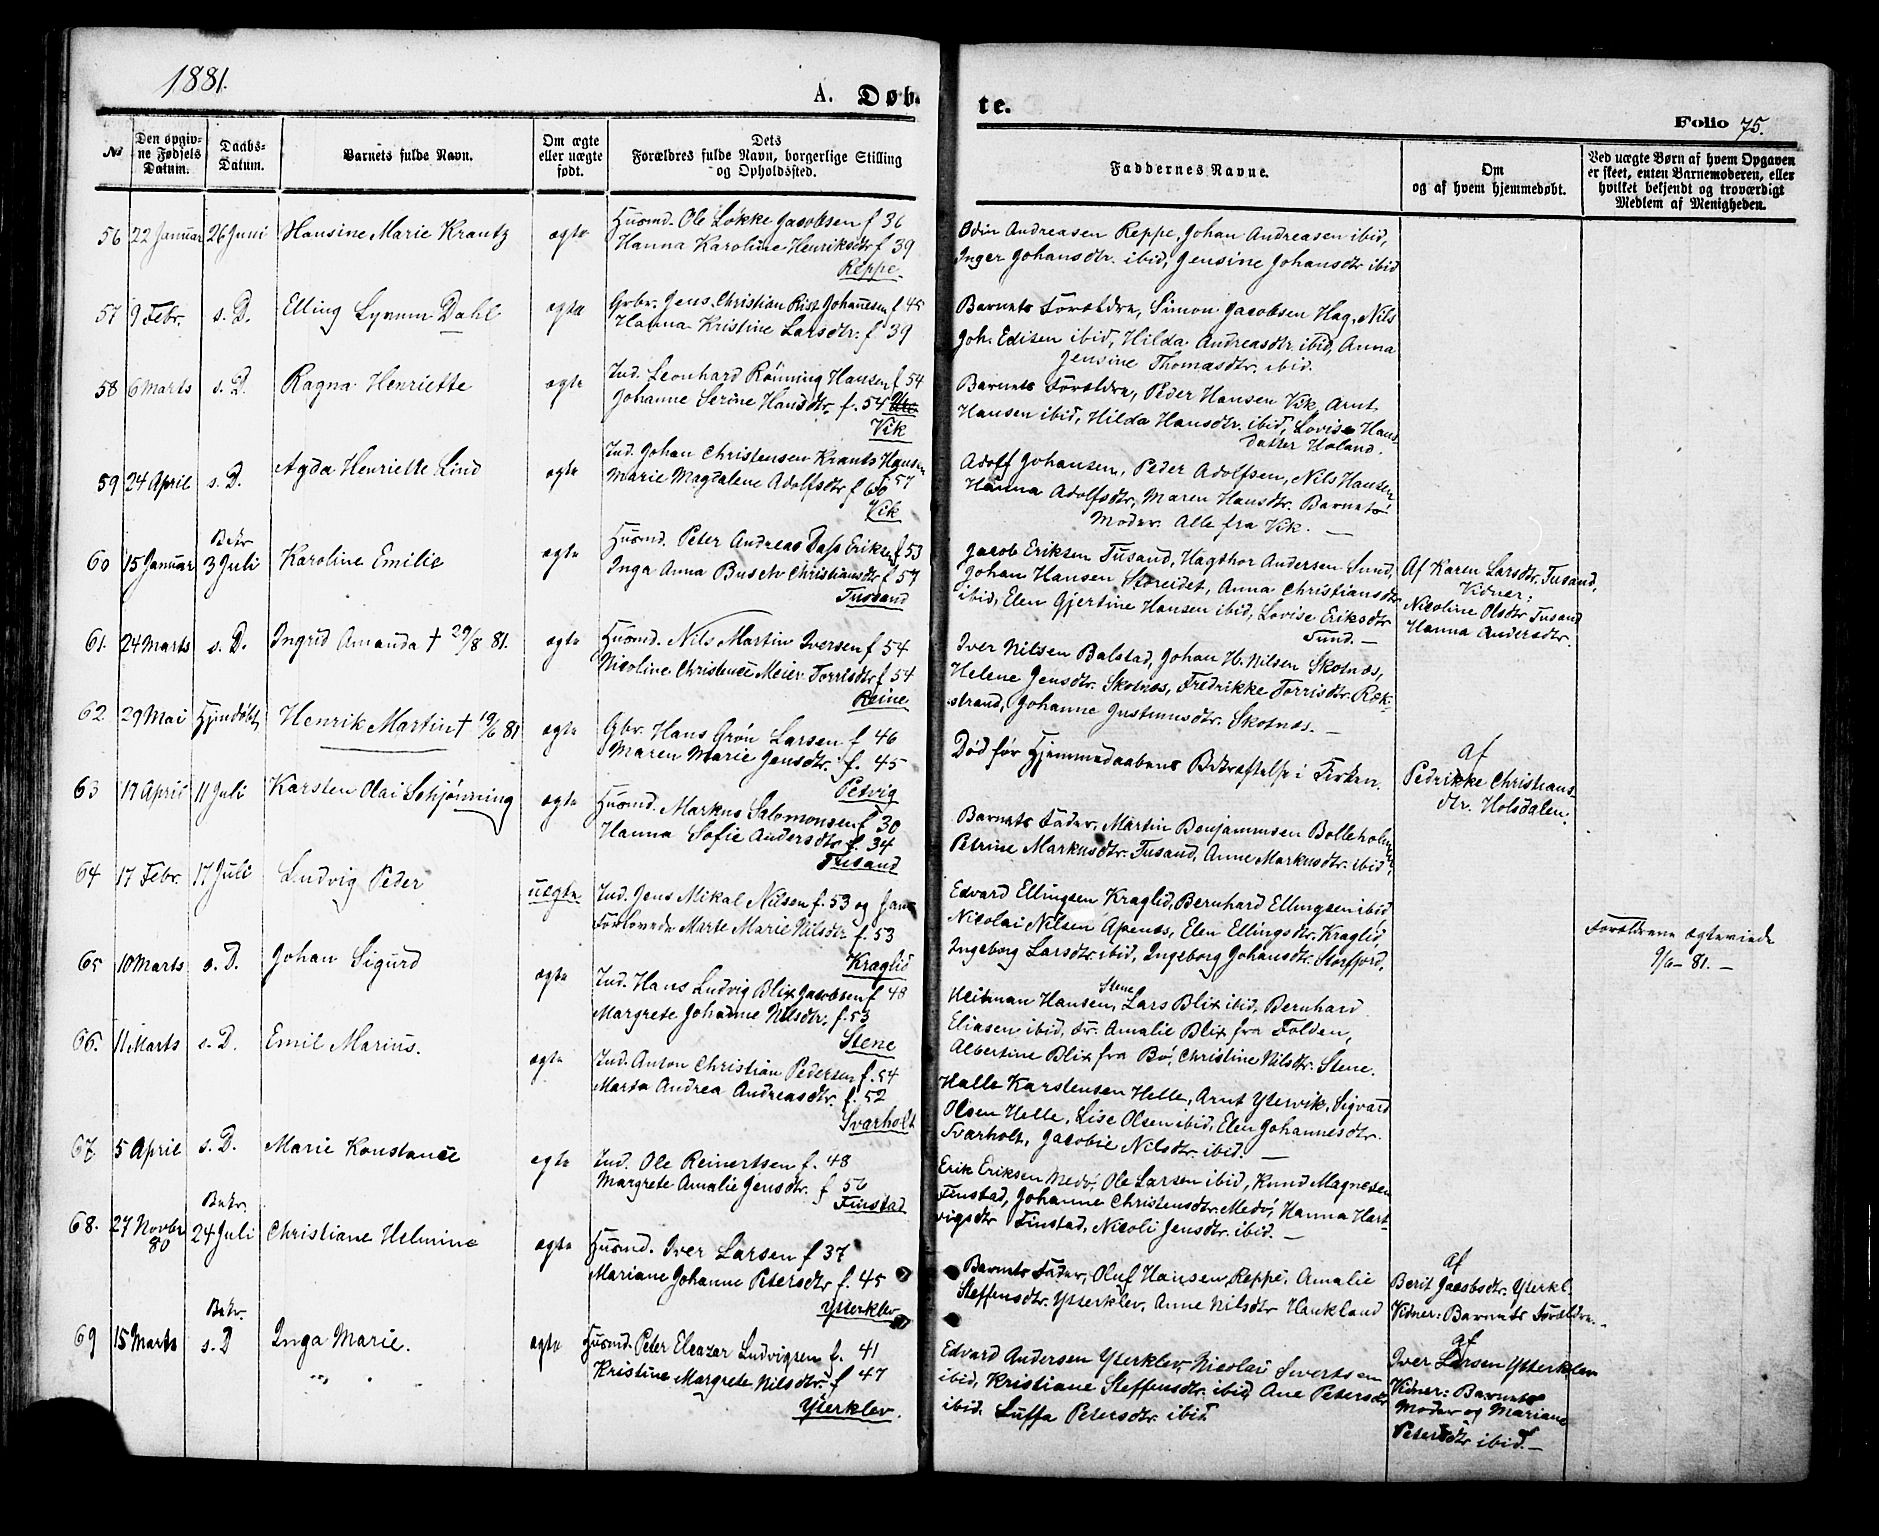 1881.
A. Døb-
te.
Folio 75.
No
Den opgiv-
ne Fødsels
Datum.
Daabs-
Datum.
Barnets fulde Navn.
Om ægte
eller uægte
født.
Dets
Forældres fulde Navn, borgerlige Stilling
og Opholdssted.
Faddernes Navne.
Om
og af hvem hjemmedøbt.
Ved uægte Børn af hvem Opgaven
er skeet, enten Barnemoderen, eller
hvilket bekjendt og troværdigt
Medlem af Menigheden.
56 22 Januar 26 Juni Hansine Marie Krantz ægte
Huusmd. Ole Løkke Jacobsen f 36
Hanna Karoline Henriksdtr f 39
Reppe.
Odin Andreasen Reppe, Johan Andreasen ibid,
Inger Johansdtr. ibid, Jensine Johansdtr ibid
57 9 Febr. s. D. Elling Lynum Dahl ægte
Grbr. Jens Christian Rist Johannesen f 45
Hanna Kristine Larsdtr. f 39
Barnets Forældre, Simon Jacobsen Hag, Nils
Joh. Edisen ibid, Hilda Andreasdtr ibid, Anna
Jensine Thomasdtr. ibid.
58 6 Marts s. D. Ragna Henriette ægte
Ind. Leonhard Rønning Hansen f 54
Johanne Serine Hansdtr. f. 54
Vik
Barnets Forældre, Peder Hansen Vik, Arnt
Hansen ibid, Hilda Hansdtr. ibid, Lovise Hans
Datter Holand.
59 24 April s. D. Agda Henriette Lind ægte
Ind. Johan Christensen Krants Hansen
f 57
Marie Magdalene Adolfsdtr f 60
Vik
Adolf Johansen, Peder Adolfsen, Nils Hansen
Hanna Adolfsdtr, Maren Hansdtr. Barnets
Moder. Alle fra Vik. —
60 15 Januar Bekr. 3 Juli Karoline Emilie ægte
Huusmd. Peter Andreas Dass Eriksen f 53
Inga Anna Busch Christiansdtr f 57
Tussand
Jacob Eriksen Tusand, Hagthor Andersen Sund,
Johan Hansen Storeidet, Anna Christiansdtr
ibid, Elen Gjertine Hansen ibid, Lovise Eriksdtr
Sund. —
Af Karen Larsdtr. Tusand,
Vidner:
Nicoline Olsdtr Tusand
Hanna Andersdtr.
61. 24 Marts s. D. Ingrid Amanda † 29/8 81. ægte
Huusmd. Nils Martin Iversen f 54
Nicoline Christence Meier Torrisdtr f 54
Reine
Iver Nilsen Balstad, Johan H. Nilsen Skotnæs,
Helene Jensdtr. Skotnæs, Fredrikke Torrisdtr. Ræk-
strand, Johanne Justinusdtr. Skotnæs. —
62 29 Mai Hjmdøbt, Henrik Martin † 19/6 81 ægte
Gbr. Hans Grøn Larsen f 46
Maren Marie Jensdtr. f. 45
Petvig
Død før Hjemmedaabens Bekræftelse i Kirken.
Af
Pedrikke Christians-
dtr. Holsdalen.
63 17 April 11 Juli Karsten Olai Schjønning ægte
Huusmd. Markus Salomonsen f 30
Hanna Sofie Andersdtr f. 34
Tusand
Barnets Fader, Martin Benjaminsen Bolleholmen
Petrine Markusdtr. Tusand, Anne Markusdtr. ibid
64 17 Febr. 17 Juli Ludvig Peder uægte
Ind. Jens Mikal Nilsen f. 53 og hans
Forlovede Marte Marie Nilsdtr f. 53
Kraglid
Edvard Ellingsen Kraglid, Bernhard Ellingsen ibid
Nicolai Nilsen Apenæs, Elen Ellingsdtr. Kraglid,
Ingeborg Larsdtr. ibid, Ingeborg Johansdtr. Storfjord.
Forældrene ægteviede
9/6 - 81. —
65 10 Marts s. D. Johan Sigurd ægte
Ind. Hans Ludvig Blix Jacobsen f 48
Margrete Johanne Nilsdtr. f. 53
Stene
Stene
Heitman Hansen, Lars Blix ibid, Bernhard
Eliasen ibid, Fr. Amalie Blix fra Folden,
Albertine Blix fra Bø, Christine Nilsdtr. Stene.
66. 11 Marts s. D. Emil Marius. ægte
Ind. Anton Christian Pedersen f. 54
Marta Andrea Andreasdtr. f. 52
Svarholt
Halle Karstensen Helle, Arnt Ytervik, Sigvard
Olsen Helle, Lise Olsen ibid, Elen Johannesdtr.
Svarholt, Jacobie Nilsdtr. ibid. —
67. 5 April s. D. Marie Konstance ægte
Ind. Ole Reinertsen f. 48
Margrete Amalie Jensdtr. f 56
Finstad
Erik Eriksen Medø, Ole Larsen ibid, Knud Magnesen
Finstad, Johanne Christensdtr. Medø, Hanna Hart-
vigsdtr Finstad, Nicoli Jensdtr. ibid. —
68. 27 Novbr 80 Bekr. 24 Juli Christiane Helmine ægte
Huusmd. Iver Larsen f 37
Mariane Johanne Petersdtr f. 45
Ytterklev
Barnets Fader, Oluf Hansen Reppe, Amalie
Steffensdtr. Ytterklev, Anne Nilsdtr Haukland
af
Berit Jacobsdtr. Yterkl.
Vidner: Barnets Forældre.
69 15 Marts Bekr. s. D Inga Marie. ægte
Huusmd. Peter Eleazar Ludvigsen f. 41
Kristine Margrete Nilsdtr. f 47
Yterklev.
Edvard Andersen Yterklev, Nicolai Sivertsen
ibid, Kristiane Steffensdtr. ibid, Ane Petersdtr
ibid. Luffa Petersdtr. ibid.
af
Iver Larsen Ytterklev
Vidner: Barnets
Moder og Mariane
Petersdtr ibid. —